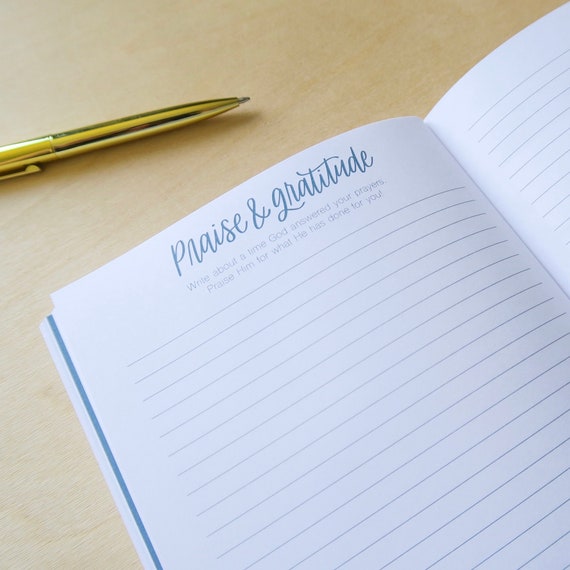 Praise & gratitude
Write about a time God answered your prayers.
Praise Him for what He has done for you!